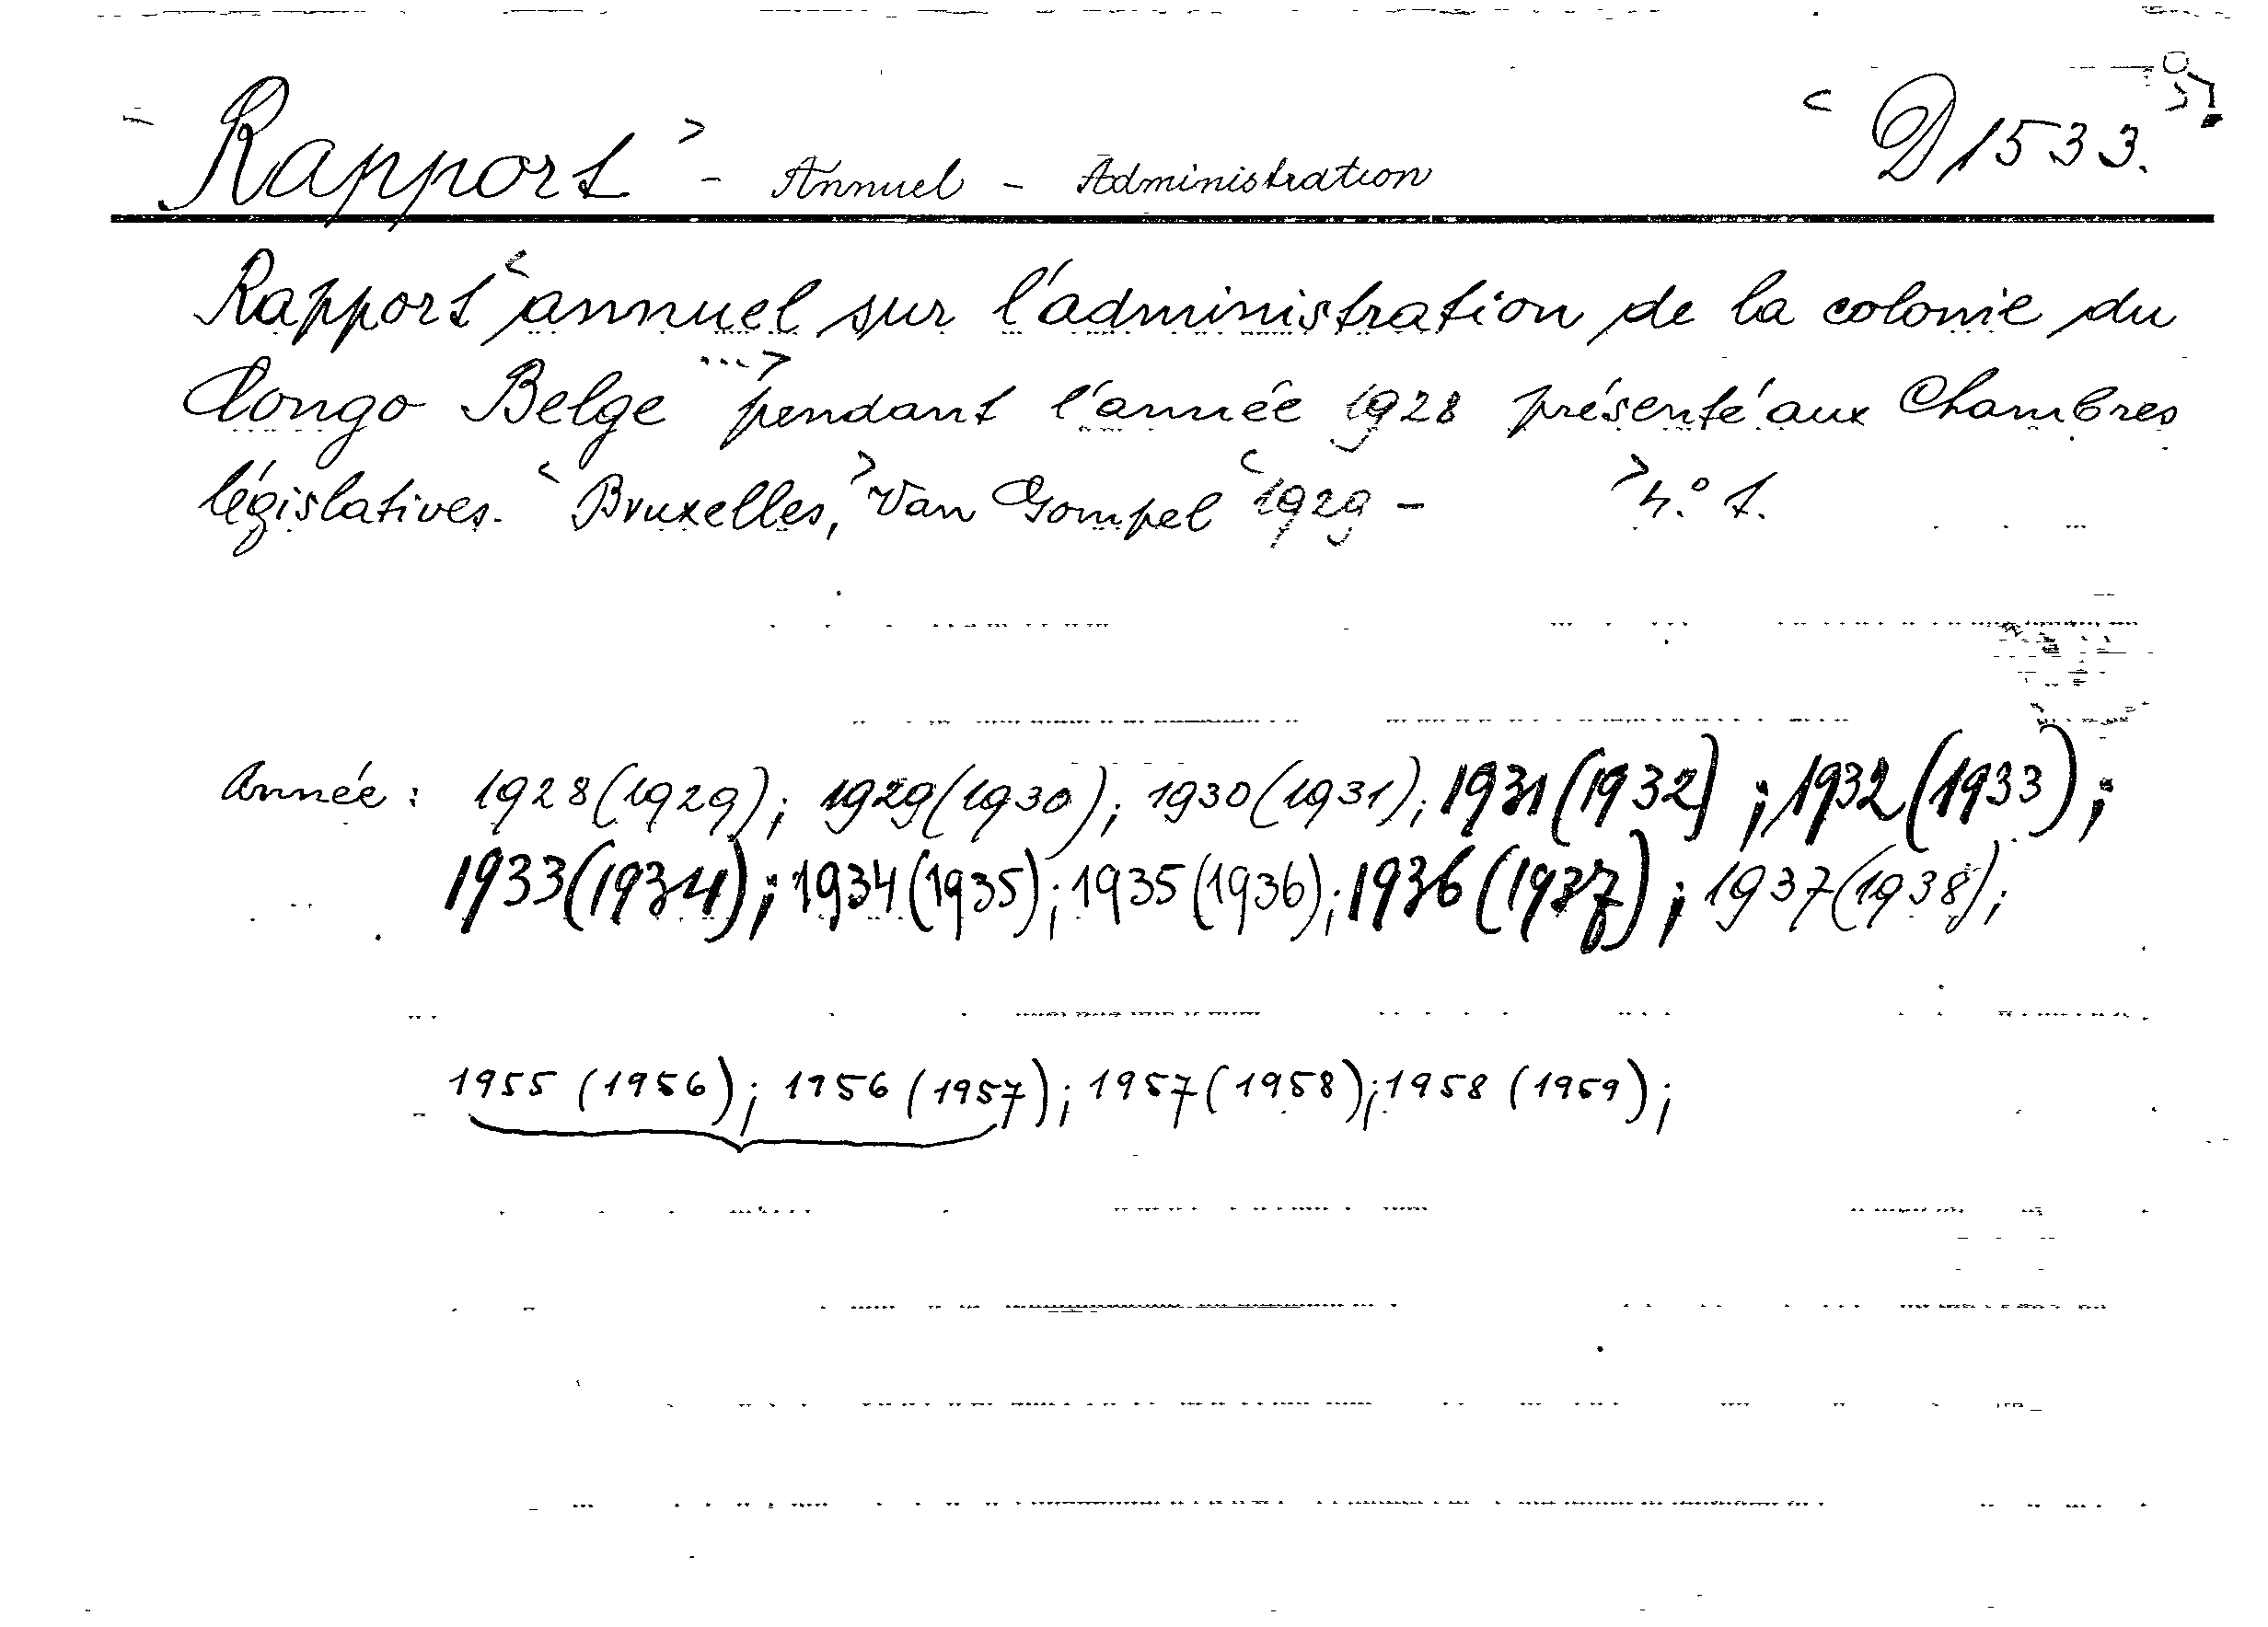 Rapport - Annuel - Administration D 1533.
Rapport annuel sur l'administration de la colonie du
Congo Belge ... pendant l'année 1928 présenté aux Chambres
législatives. Bruxelles, Van Gompel 1929 - 4° t.
Année : 1928 (1929); 1929 (1930); 1930 (1931); 1931 (1932); 1932 (1933);
1933 (1934); 1934 (1935); 1935 (1936); 1936 (1937); 1937 (1938);
1955 (1956); 1956 (1957); 1957 (1958); 1958 (1959);